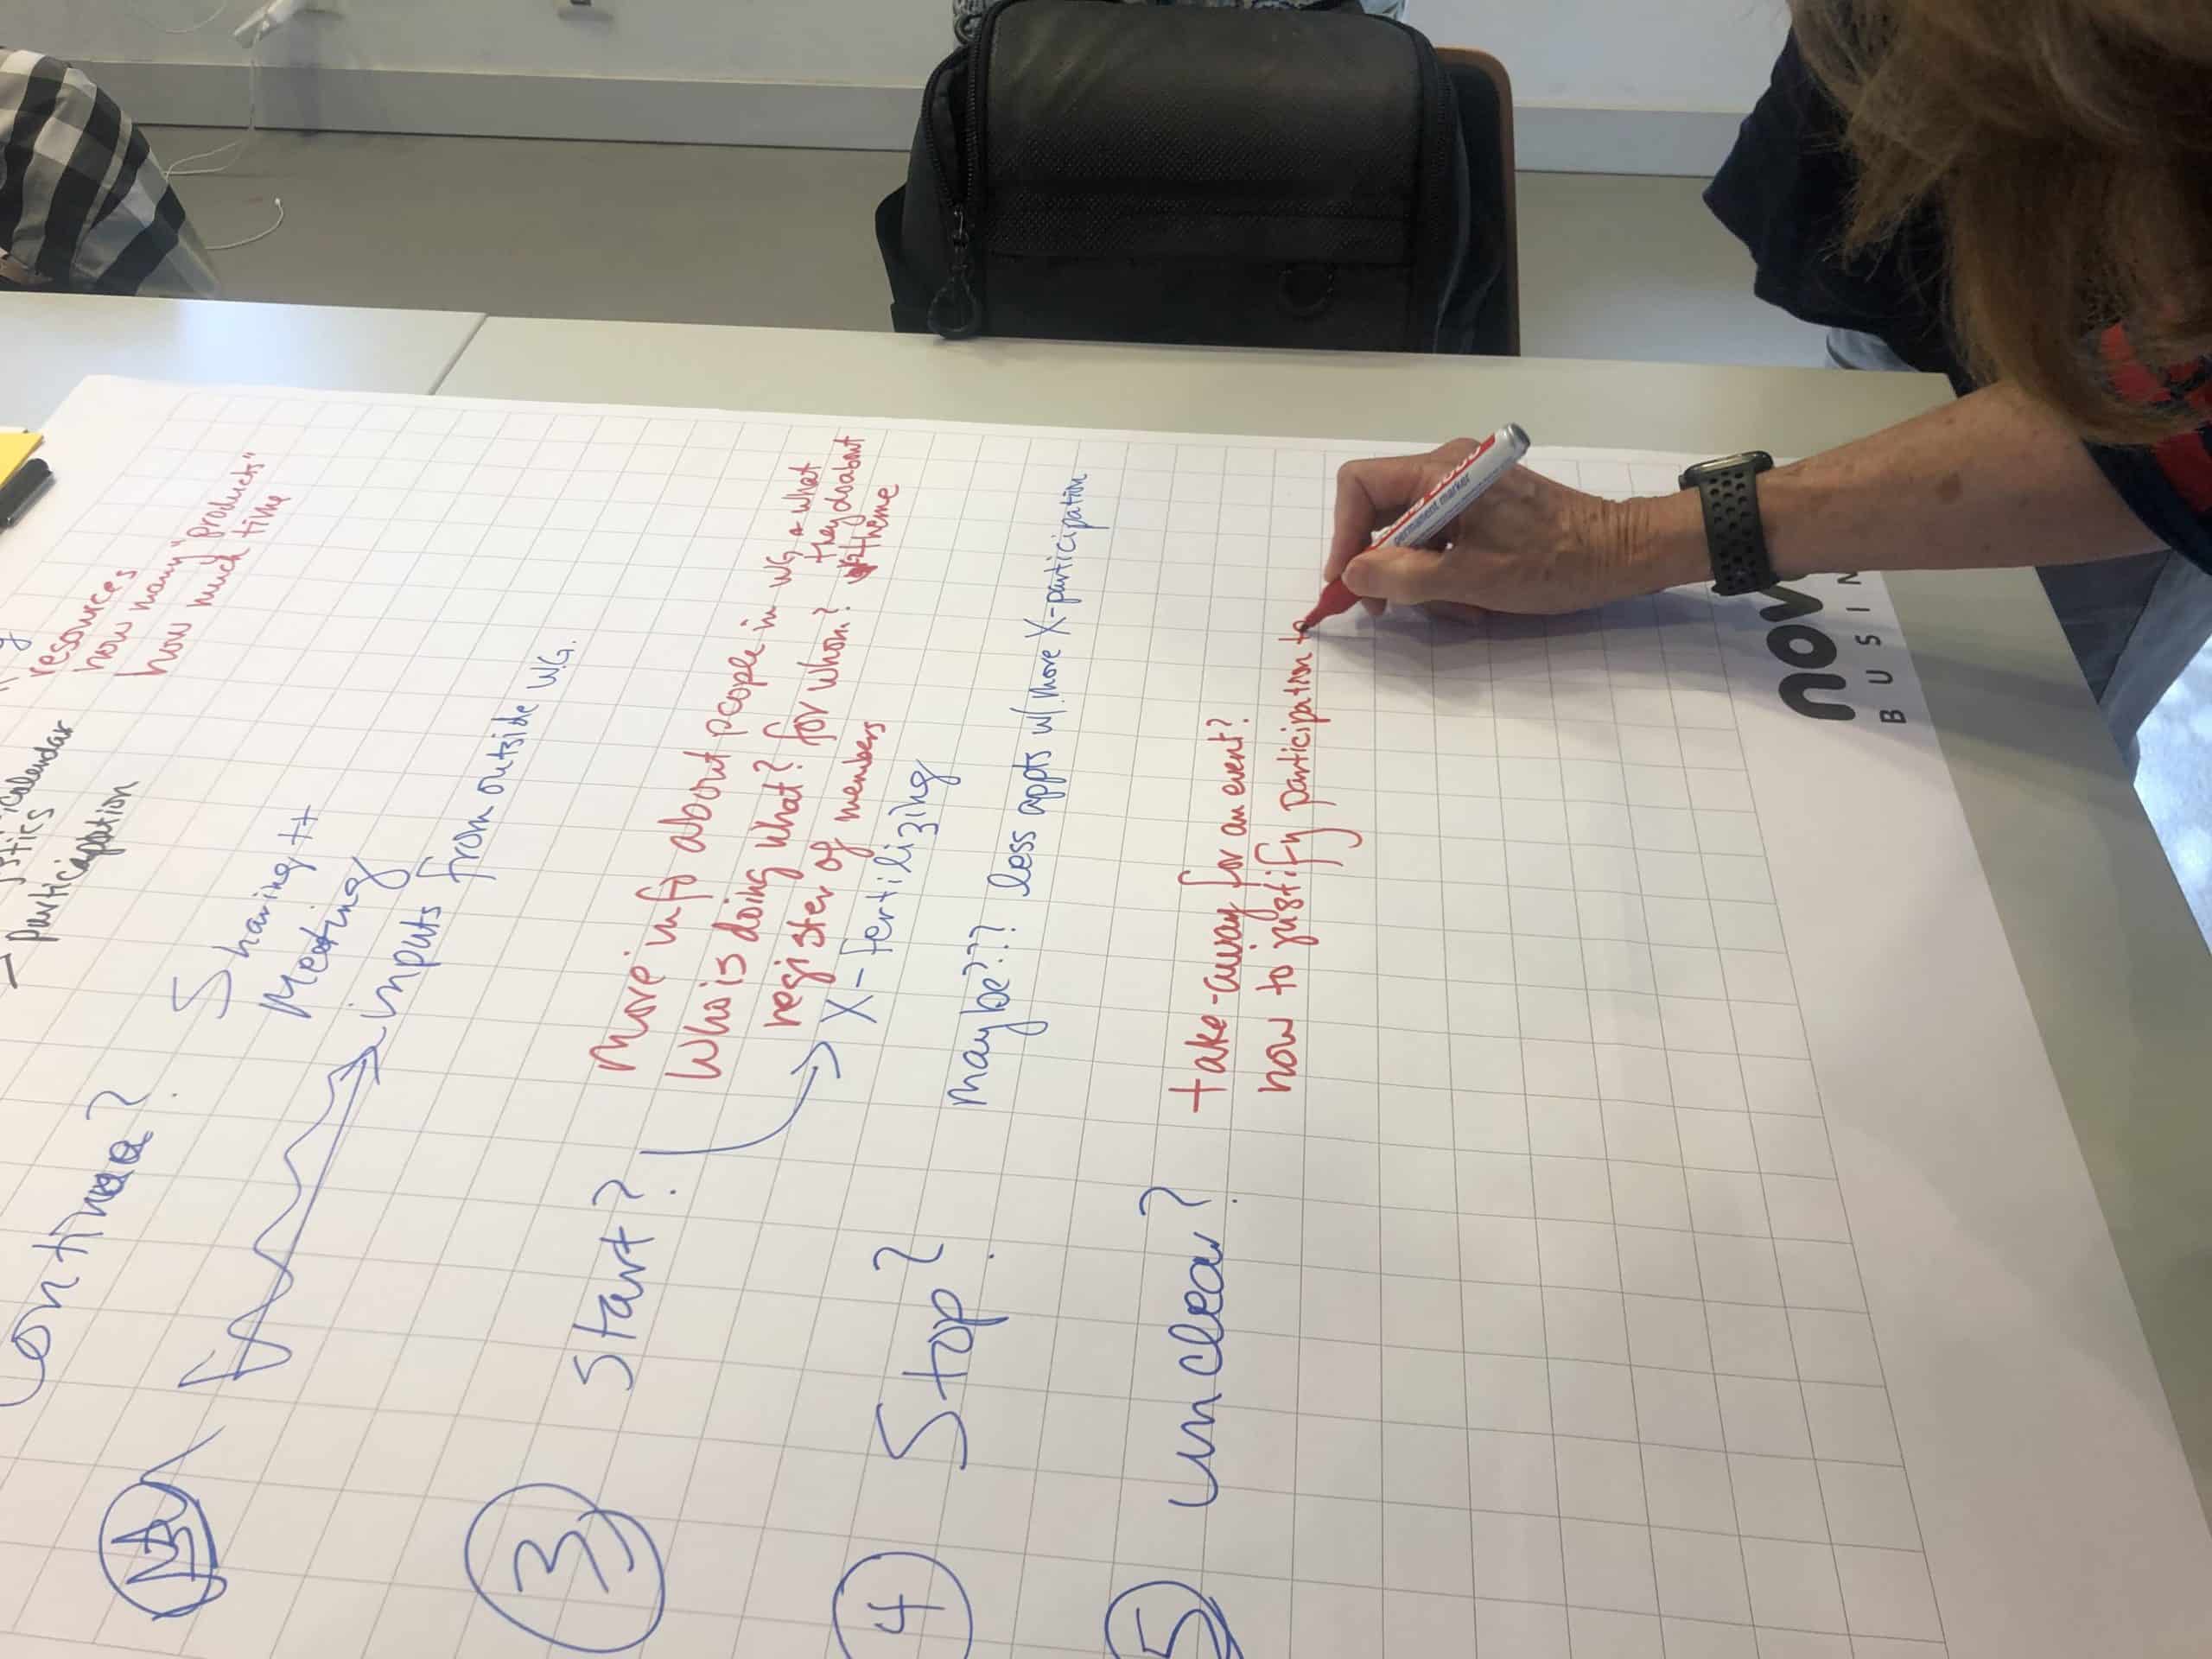 resources
how many "products"
how much time
calendar
participation
Continue?
Sharing ++
Meeting
inputs from outside WG.
3
Start?
More info about people in WG & what
they do about
theme
Who is doing what? for whom?
register of members
X-fertilizing
4
Stop?
maybe??? less appts w/ more X-participation
5
unclear?
take-away for an event?
how to justify participation to
permanent marker
nov
BUSIN